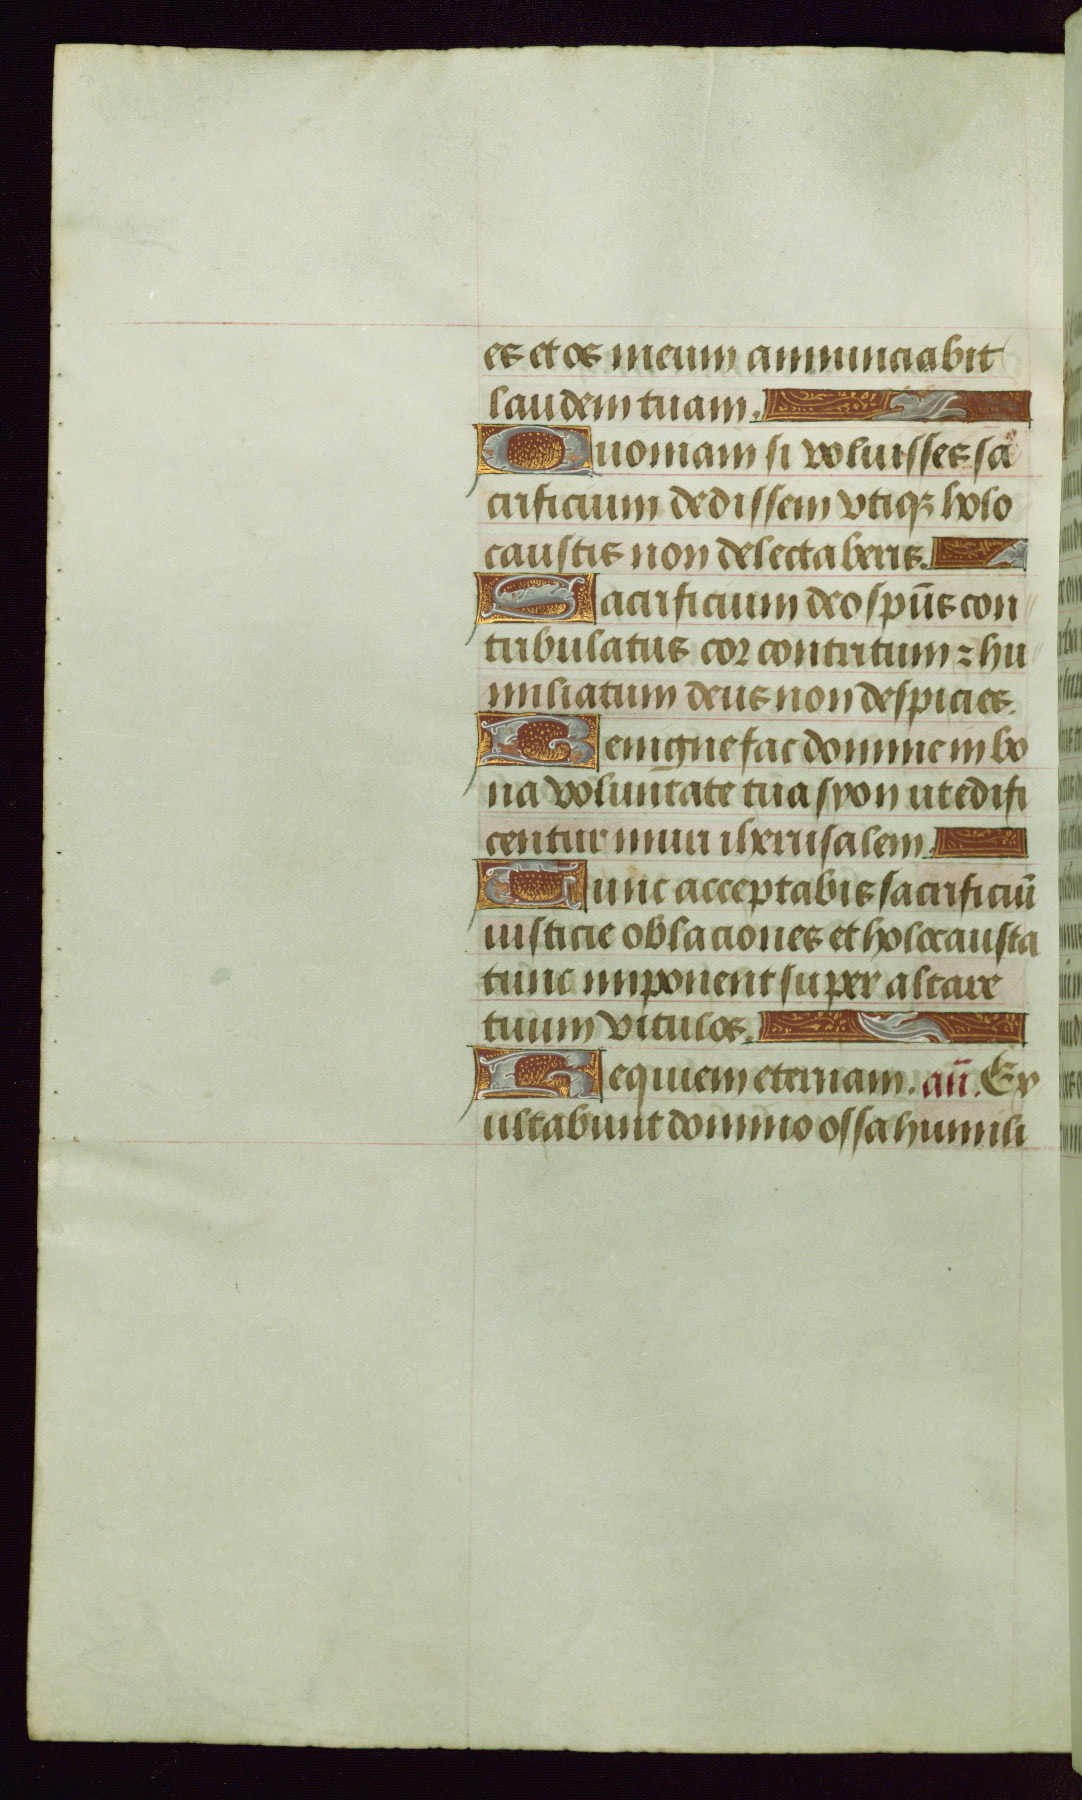 es et os meum annunciabit
laudem tuam.
Quoniam si voluisses sa
crificium dedissem vtiqꝫ holo
caustis non delectaberis.
Sacrificium deo spūs con
tribulatus cor contritum ⁊ hu
miliatum deus non despicies.
Benigne fac domine in bo
na voluntate tua syon ut edifi
centur muri iherusalem.
Tunc acceptabis sacrificiū
iusticie oblaciones et holocausta
tunc imponent super altare
tuum vitulos.
Requiem eternam. añ. Ex
ultabunt domino ossa humili